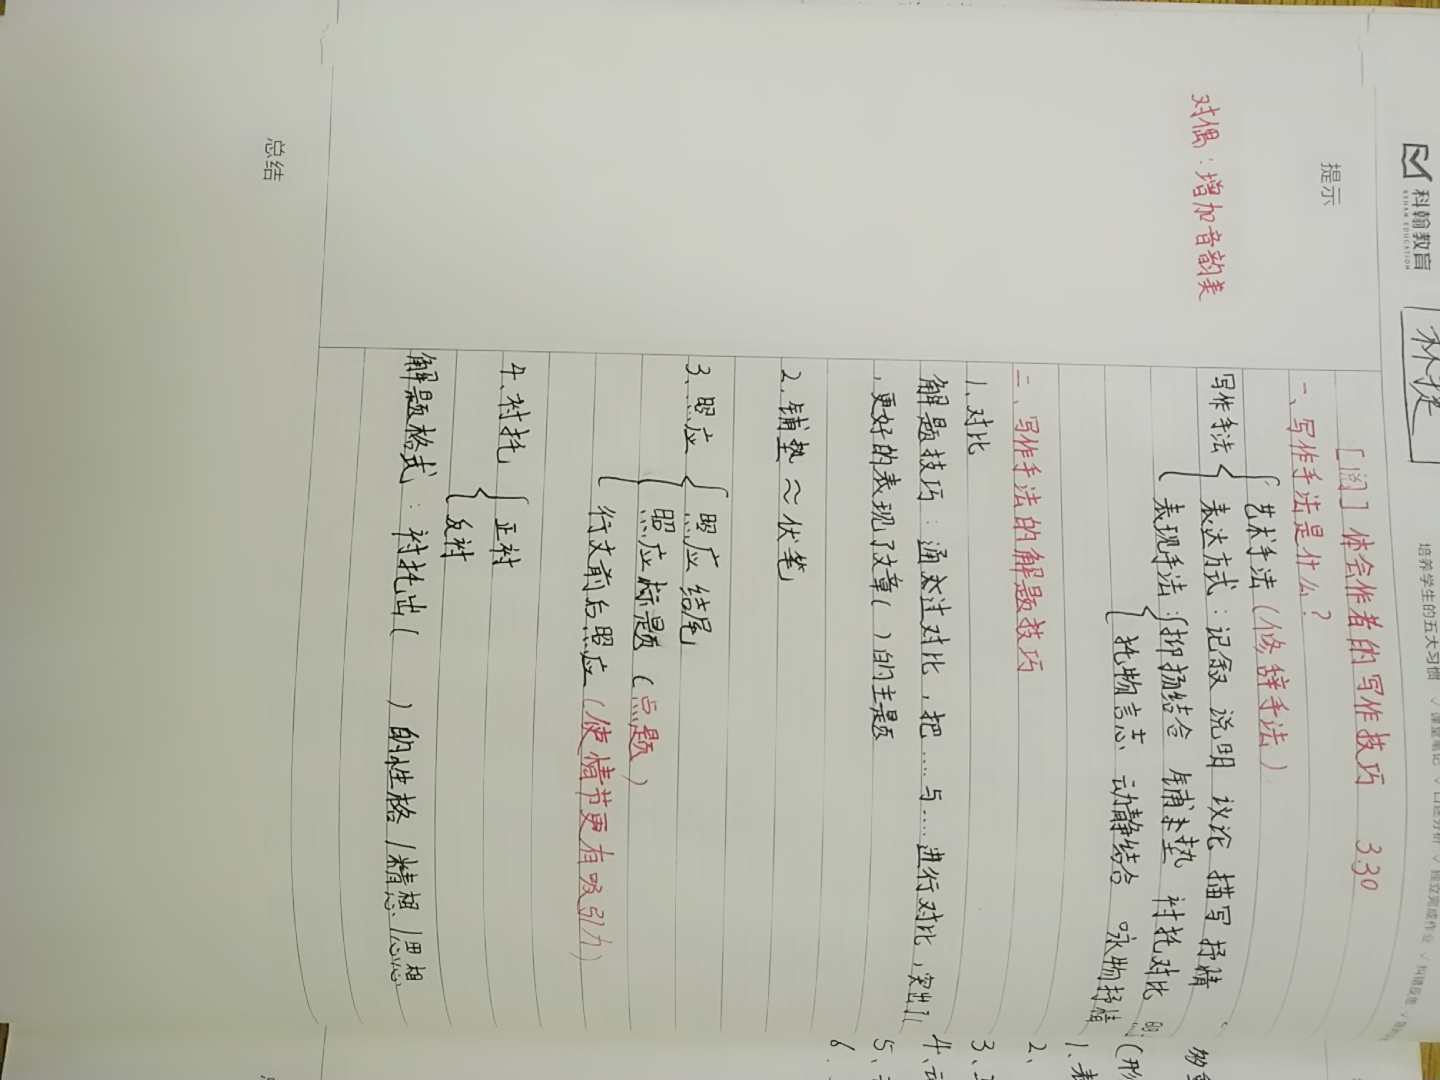 科翰教育
KEHAN EDUCATION
培养学生的五大习惯 ✓课堂笔记 ✓口述分析 ✓独立完成作业 ✓纠错反思
提示
对偶：增加音韵美
[阅] 体会作者的写作技巧 3.30
一、写作手法是什么？
艺术手法（修辞手法）
写作手法 表达方式：记叙 说明 议论 描写 抒情
表现手法：抑扬结合 铺垫 衬托对比
托物言志 动静结合 咏物抒情
二、写作手法的解题技巧
1、对比
解题技巧：通过对比，把……与……进行对比，突出了
，更好的表现了文章（ ）的主题
2、铺垫≈伏笔
3、照应 照应结尾
照应标题（点题）
行文前后照应（使情节更有吸引力）
4、衬托 正衬
反衬
解题格式：衬托出（ ）的性格/精神/思想
总结
1、
2、
3、
4、
5、
6、